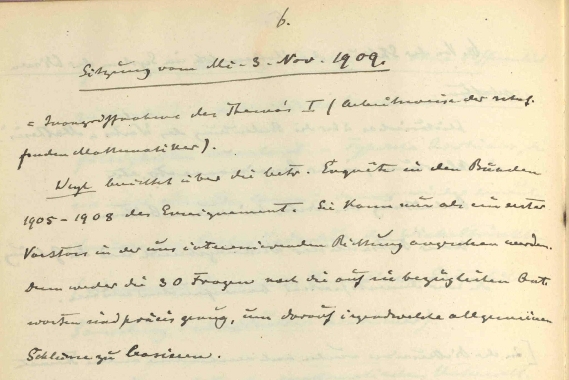 6.
Sitzung vom Mi. 3. Nov. 1909.
= Inangriffnahme des Themas I (Arbeitsweise der schaf-
fenden Mathematiker).
Weyl berichtet über die betr. Enquête in den Bänden
1905-1908 des Enseignement. Sie kann nur als ein erster
Vorstoss in der uns interessirenden Richtung angesehen werden.
Denn weder die 30 Fragen noch die auf sie bezüglichen Ant-
worten sind präcis genug, um darauf irgendwelche allgemeinen
Schlüsse zu basiren.